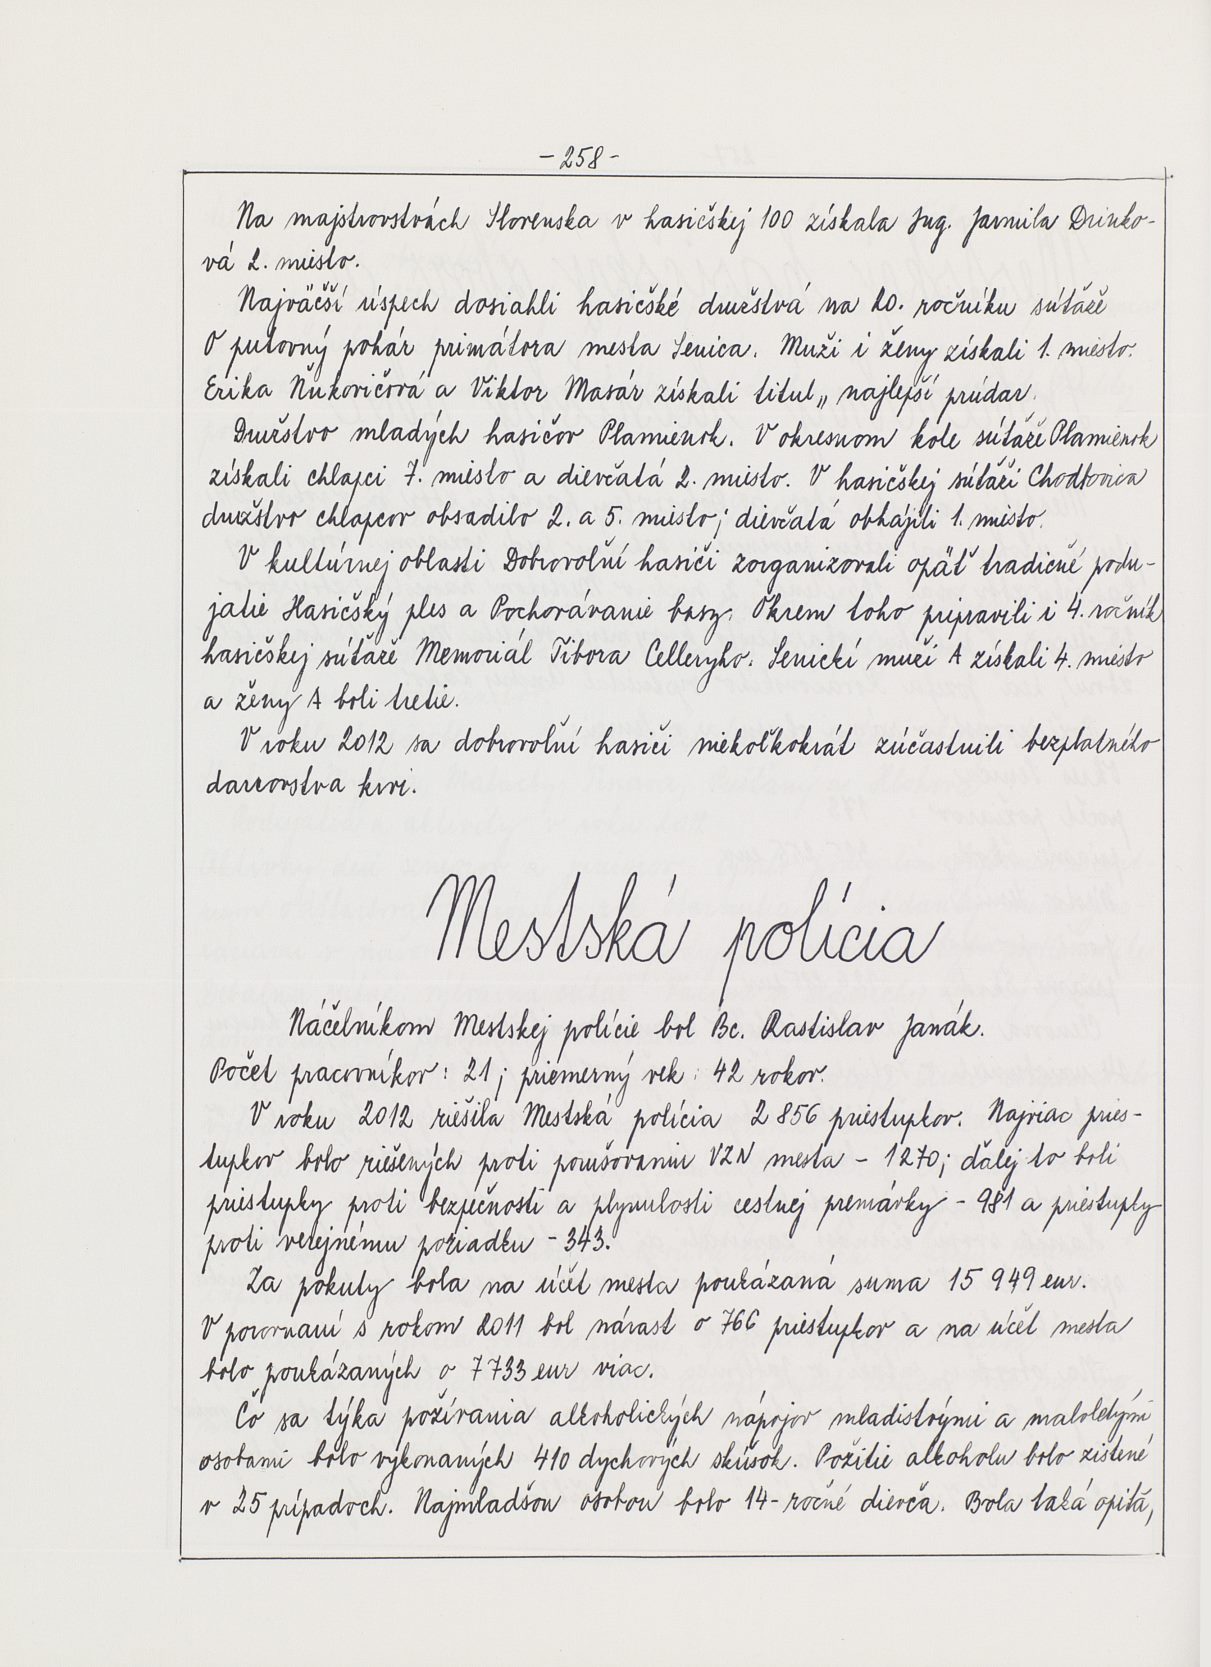 - 258 -
Na majstrovstvách Slovenska v hasičskej 100 získala Ing. Jarmila Drinko-
vá 2. miesto.
Najväčší úspech dosiahli hasičské družstvá na 20. ročníku súťaže
O putovný pohár primátora mesta Senica. Muži i ženy získali 1. miesto.
Erika Nukovičová a Viktor Masár získali titul „ najlepší prúdar.
Družstvo mladých hasičov Plamienok. V okresnom kole súťaže Plamienok
získali chlapci 7. miesto a dievčatá 2. miesto. V hasičskej súťaži
družstvo chlapcov obsadilo 2. a 5. miesto; dievčatá obhájili 1. miesto.
V kultúrnej oblasti Dobrovoľní hasiči zorganizovali opäť tradičné podu-
jatie Hasičský ples a Pochovávanie basy. Okrem toho pripravili i 4. ročník
hasičskej súťaže Memoriál Tibora Celleryho. Senickí muži A získali 4. miesto
a ženy A boli tretie.
V roku 2012 sa dobrovoľní hasiči niekoľkokrát zúčastnili bezplatného
darcovstva krvi.
Mestská polícia
Náčelníkom Mestskej polície bol Bc. Rastislav Janák.
Počet pracovníkov: 21; priemerný vek: 42 rokov.
V roku 2012 riešila Mestská polícia 2 856 priestupkov. Najviac pries-
tupkov bolo riešených proti porušovaniu VZN mesta - 1270; ďalej to boli
priestupky proti bezpečnosti a plynulosti cestnej premávky - 981 a priestupky
proti verejnému poriadku - 343.
Za pokuty bola na účet mesta poukázaná suma 15 949 eur.
V porovnaní s rokom 2011 bol nárast o 766 priestupkov a na účet mesta
bolo poukázaných o 7 733 eur viac.
Čo sa týka požívania alkoholických nápojov mladistvými a maloletými
osobami bolo vykonaných 410 dychových skúšok. Požitie alkoholu bolo zistené
v 25 prípadoch. Najmladšou osobou bolo 14-ročné dievča. Bola taká opitá,